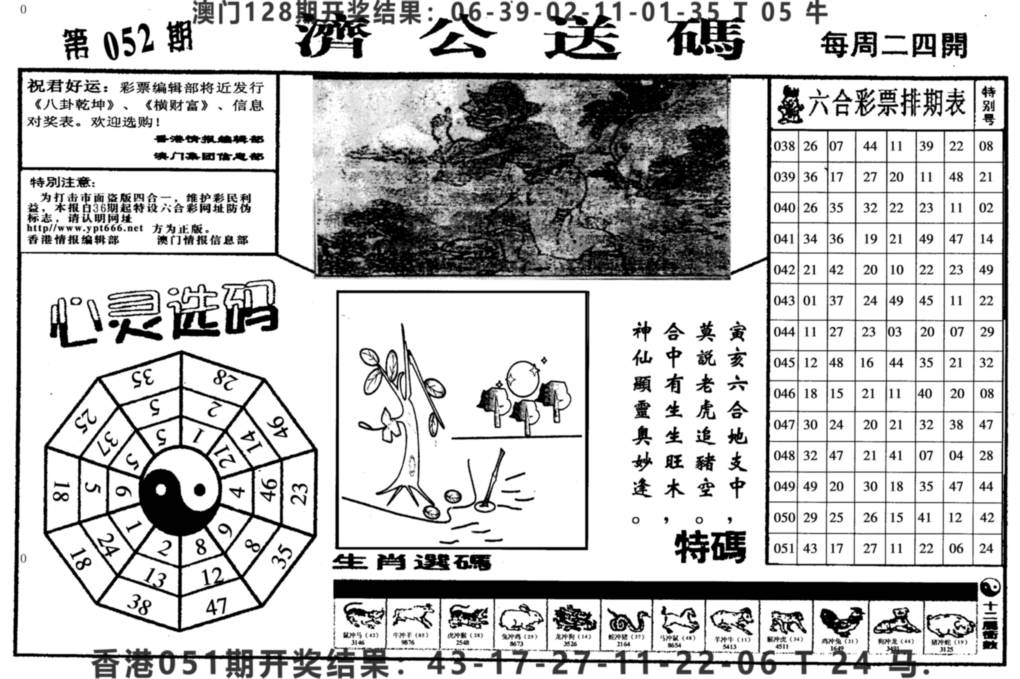 澳门128期开奖结果：06-39-02-11-01-35 T 05 牛
第052期
濟公送碼
每周二四開
祝君好运：彩票编辑部将近发行
《八卦乾坤》、《横财富》、信息
对奖表。欢迎选购！
香港情报编辑部
澳门集团信息部
特别注意：
为打击市面盗版四合一，维护彩民利
益，本报自36期起特设六合彩网址防伪
标志，请认明网址
http//www.ypt666.net 方为正版。
香港情报编辑部 澳门情报信息部
六合彩票排期表 特别号
038 26 07 44 11 39 22 08
039 36 17 27 20 11 48 21
040 26 35 32 22 23 11 02
041 34 36 19 21 49 47 14
042 21 42 20 10 22 23 49
043 01 37 24 49 45 11 22
044 11 27 23 03 20 07 29
045 12 48 16 44 35 21 32
046 18 15 21 11 40 20 08
047 30 24 20 21 32 38 47
048 32 47 21 41 07 04 28
049 49 20 30 18 35 47 44
050 29 25 26 15 41 12 42
051 43 17 27 11 22 06 24
心灵选码
35 28 46 23 35 47 38 18 18 25
5 2 14 46 8 12 13 24 5 37
5 1 21 4 9 8 2 1 6 5
寅亥六合地支中，
莫說老虎追豬空。
合中有生生旺木，
神仙顯靈奧妙逢。
特碼
生肖選碼
十二屬相衝數
鼠冲马（43） 牛冲羊 虎冲猴 兔冲鸡 龙冲狗 蛇冲猪 马冲鼠 羊冲牛 猴冲虎 鸡冲兔 狗冲龙 猪冲蛇
3146 9876 2548 8673 3526 2164 8654 5413 4511 1649 3125
香港051期开奖结果：43-17-27-11-22-06 T 24 马.